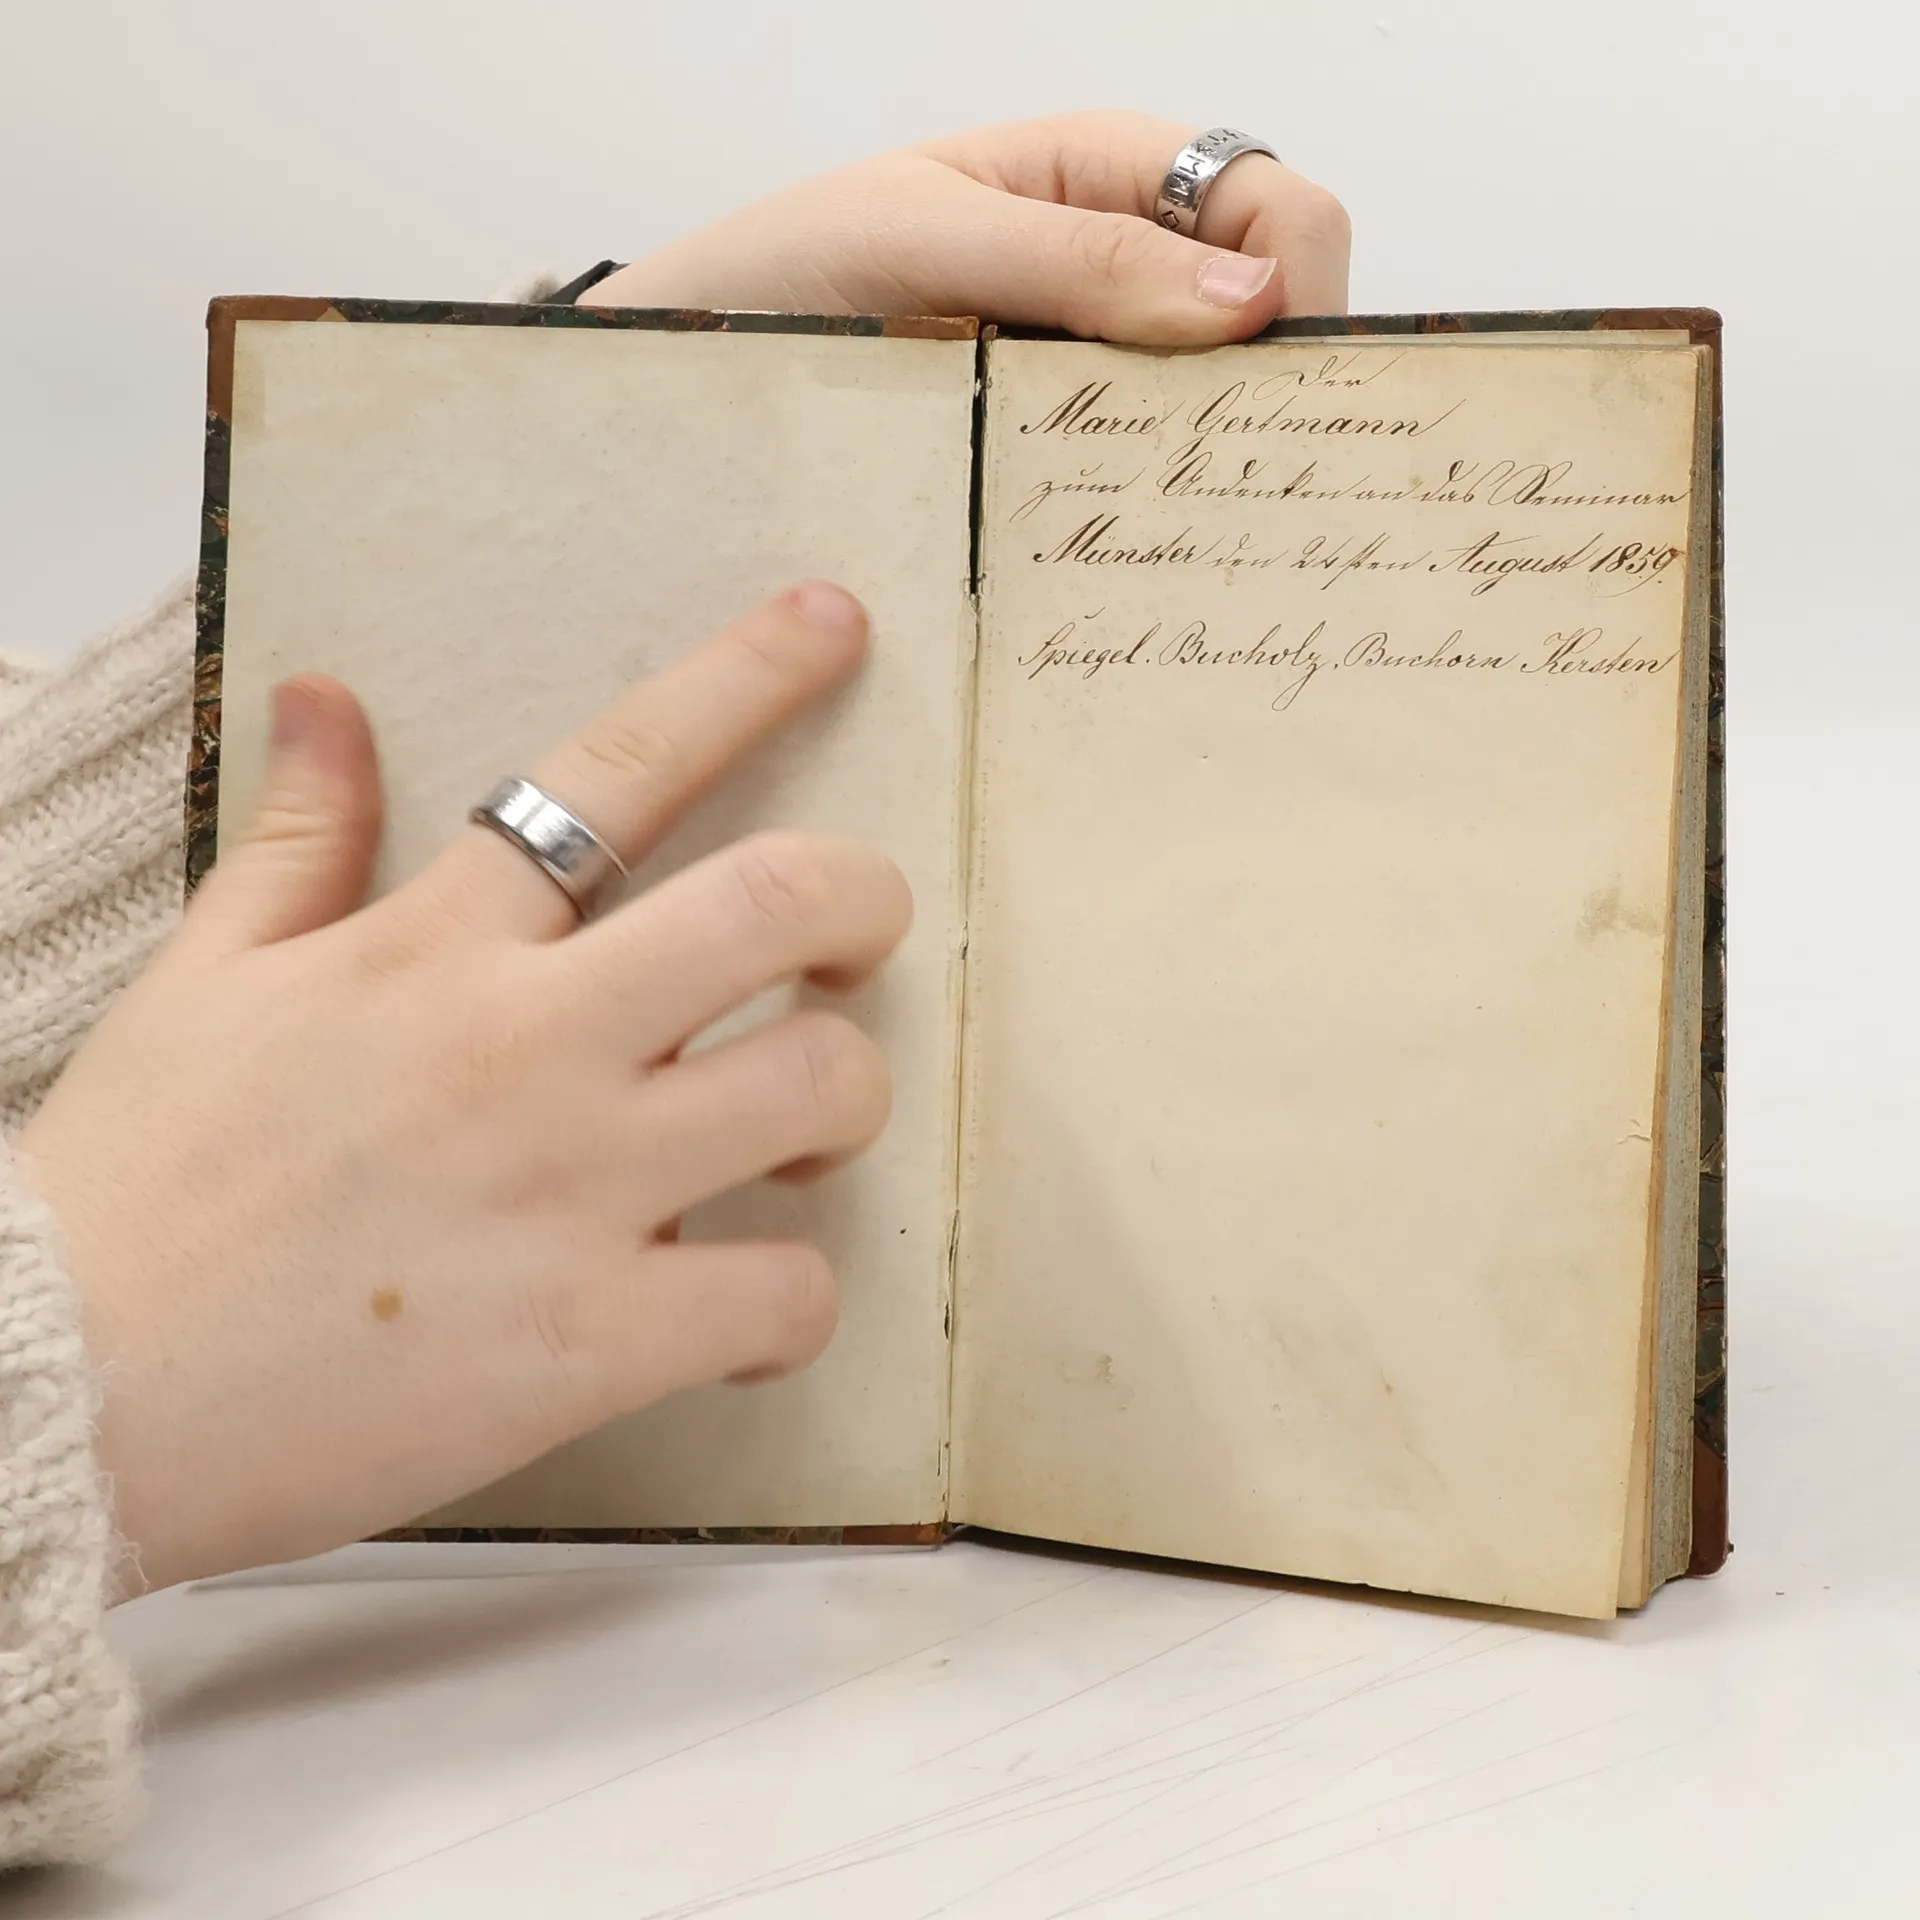 Der
Marie Gertmann
zum Andenken an das Seminar
Münster den 26sten August 1859.
Spiegel. Bucholz. Buchorn Kersten